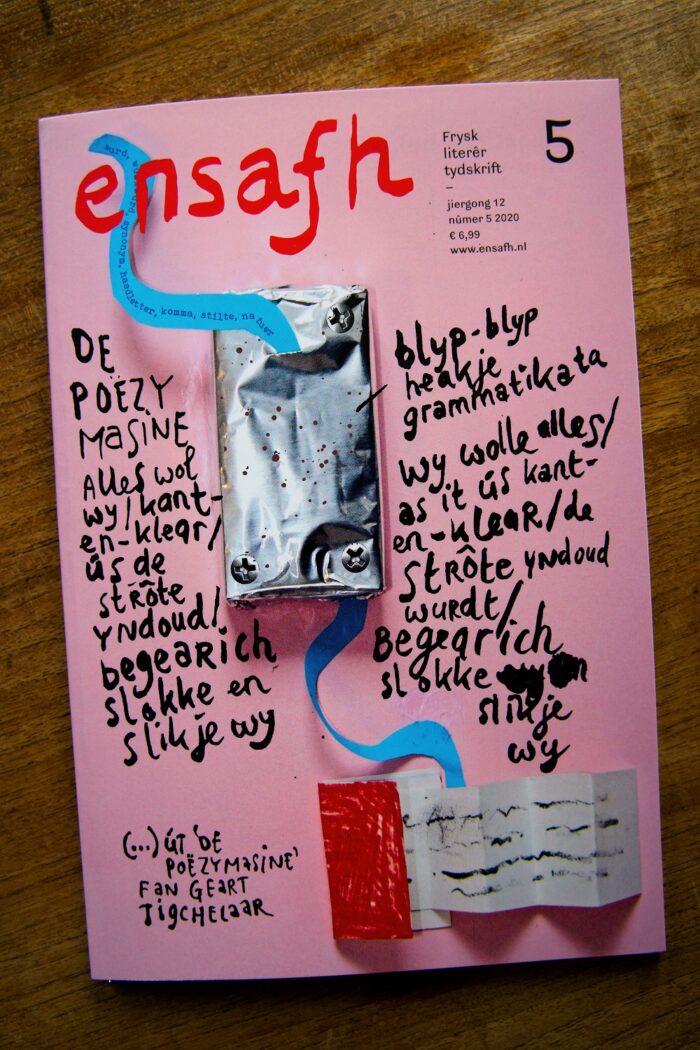 ensafh
Frysk
literêr
tydskrift
–
jiergong 12
nûmer 5 2020
€ 6,99
www.ensafh.nl
5
haadletter, komma, stilte, na
DE
POËZY
MASINE
ALLES WOL
WY/KANT-
en-klear/
ús de
strôte
YNDOUD/
begearich
slokke en
slikje wy
blyp-blyp
heakje
grammatikata
wy wolle alles/
as it ús kant-
en-klear/de
strôte YNDOUD
wurdt/
Begearich
slokke
slikje
wy
(...) ÚT 'DE
POËZYMASINE'
FAN GEART
TIGCHELAAR